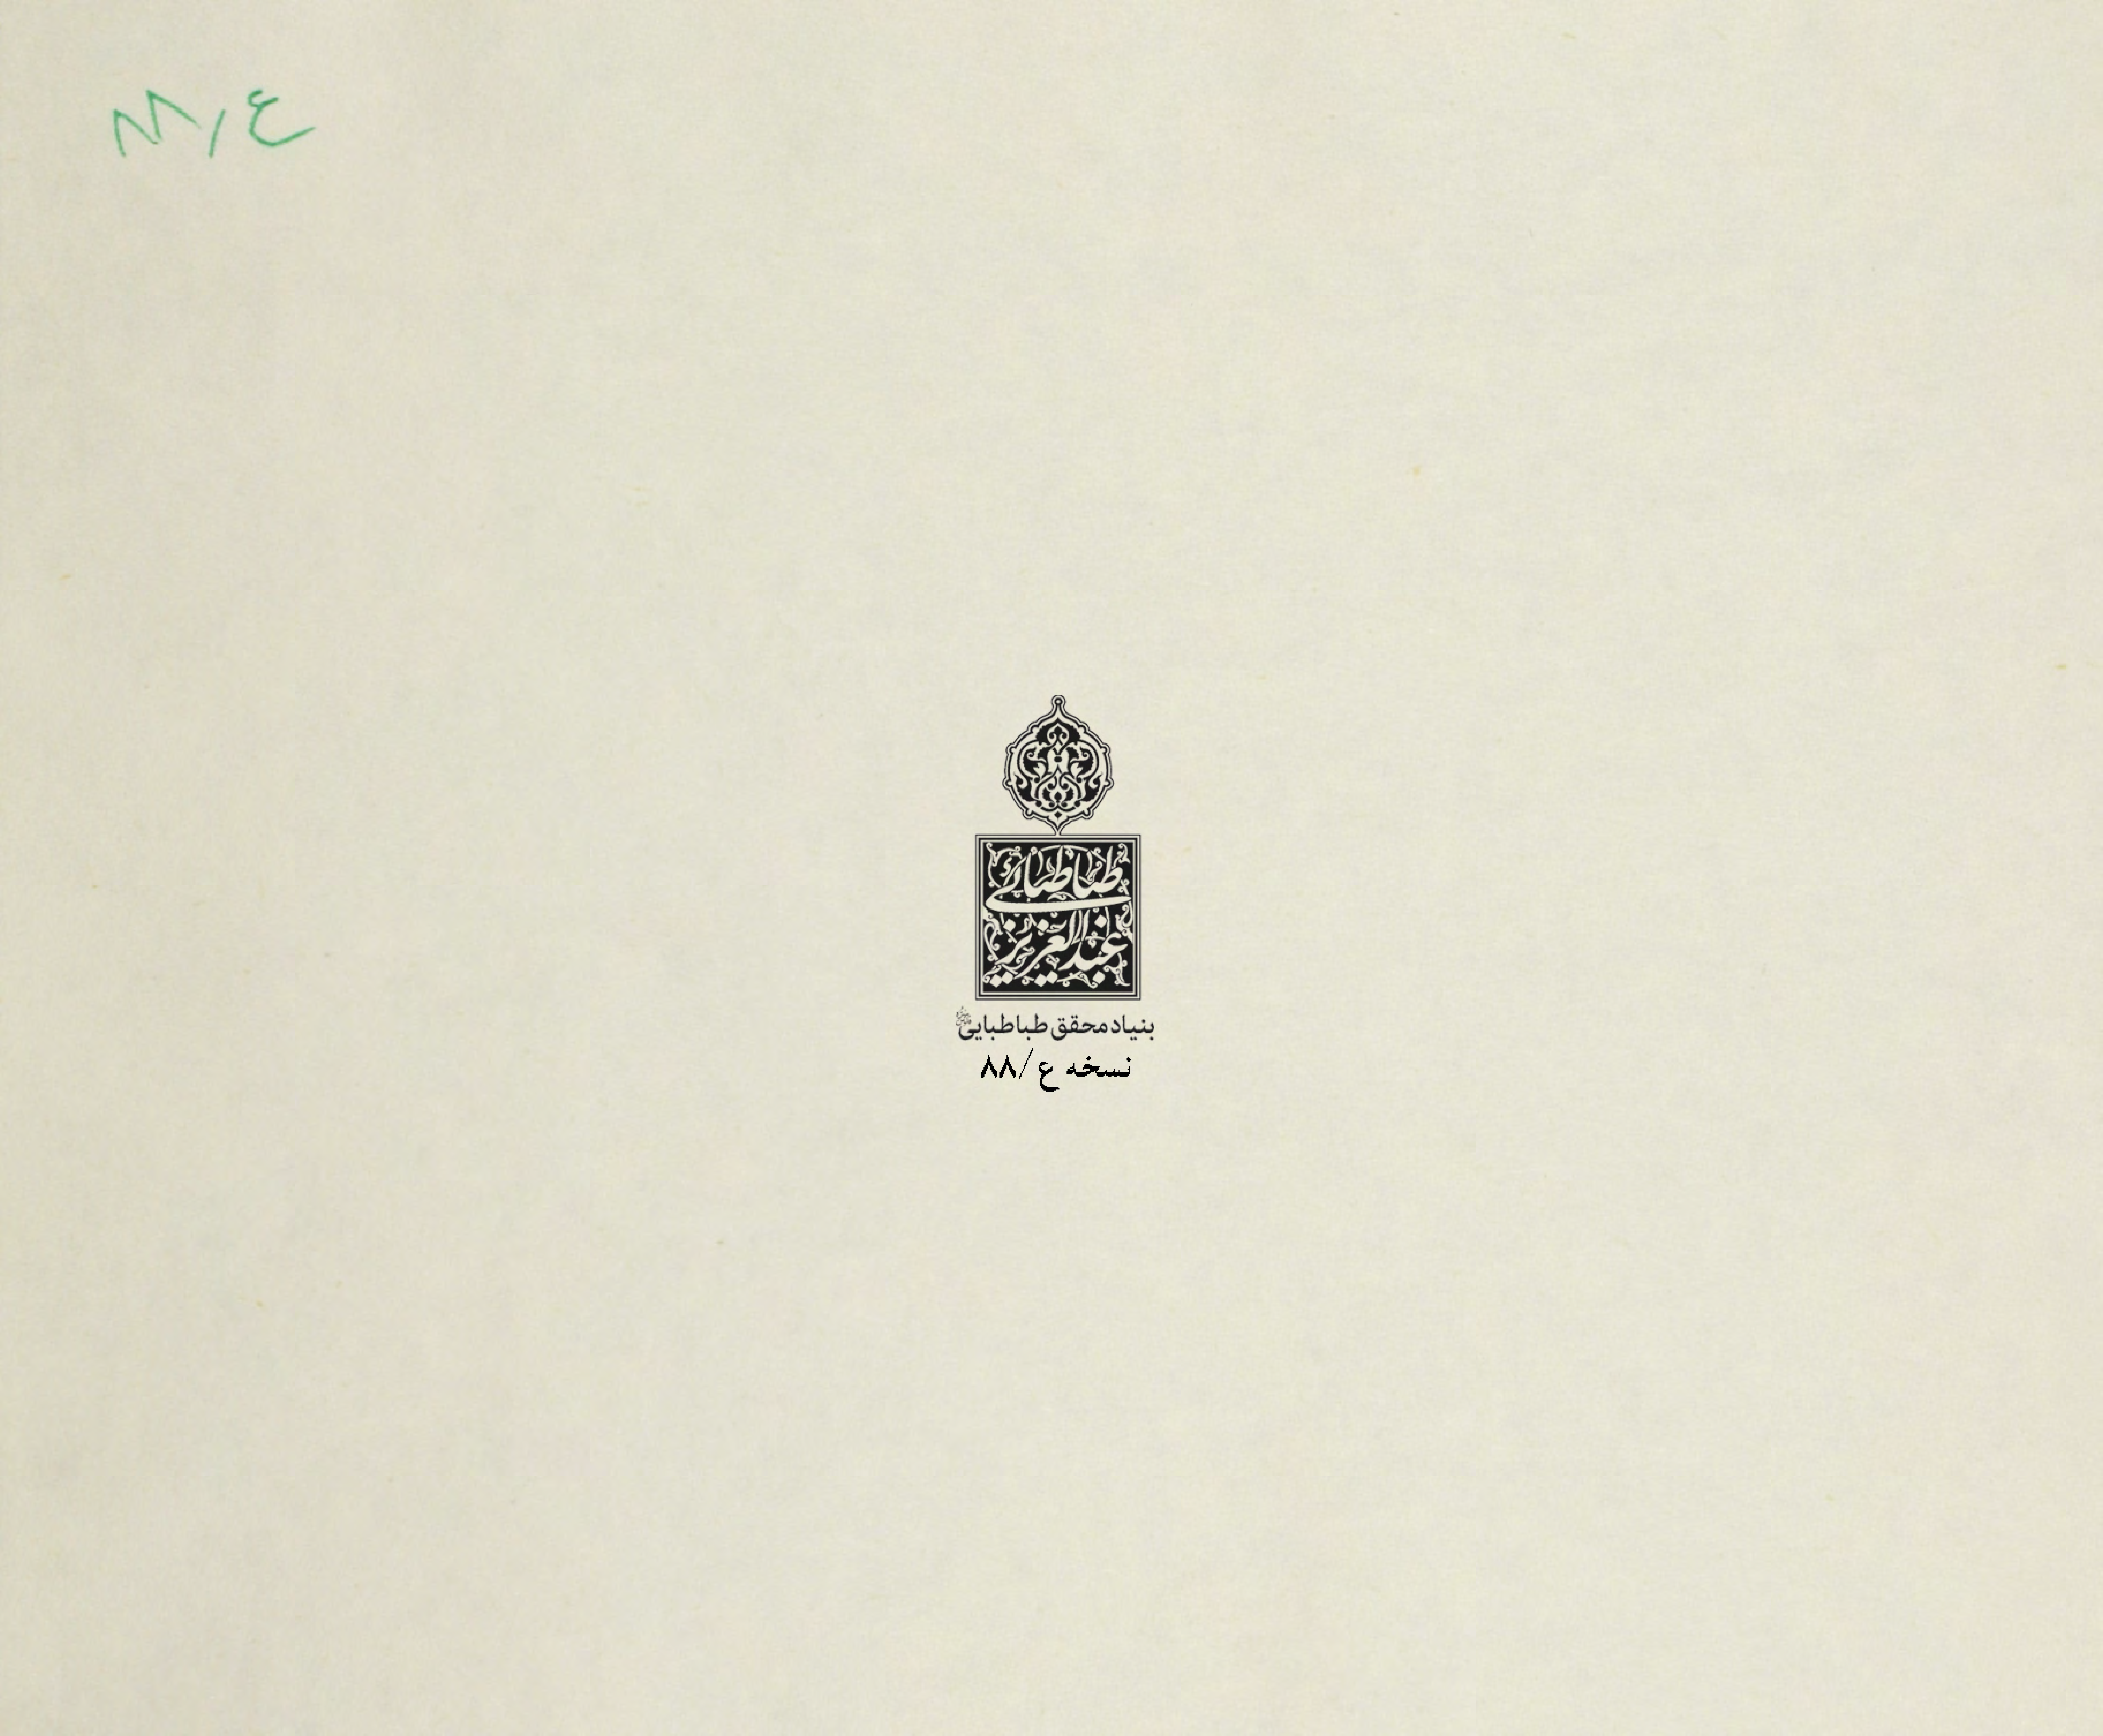 ع/۸۸
طباطبائی
عبدالعزیز
بنیاد محقق طباطبایی
نسخه ع/۸۸